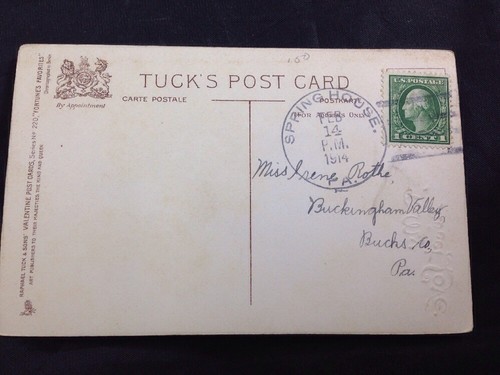 TUCK'S POST CARD
CARTE POSTALE
POSTKARTE
FOR ADDRESS ONLY
By Appointment
RAPHAEL TUCK & SONS' VALENTINE POST CARDS, SERIES NO. 220, "FORTUNE'S FAVORITES"
ART PUBLISHERS TO THEIR MAJESTIES THE KING AND QUEEN
SPRING HOUSE.
FEB
14
P.M.
1914
PA.
U.S. POSTAGE
1 CENT 1
Miss Irene Rothe,
Buckingham Valley
Bucks Co,
Pa.